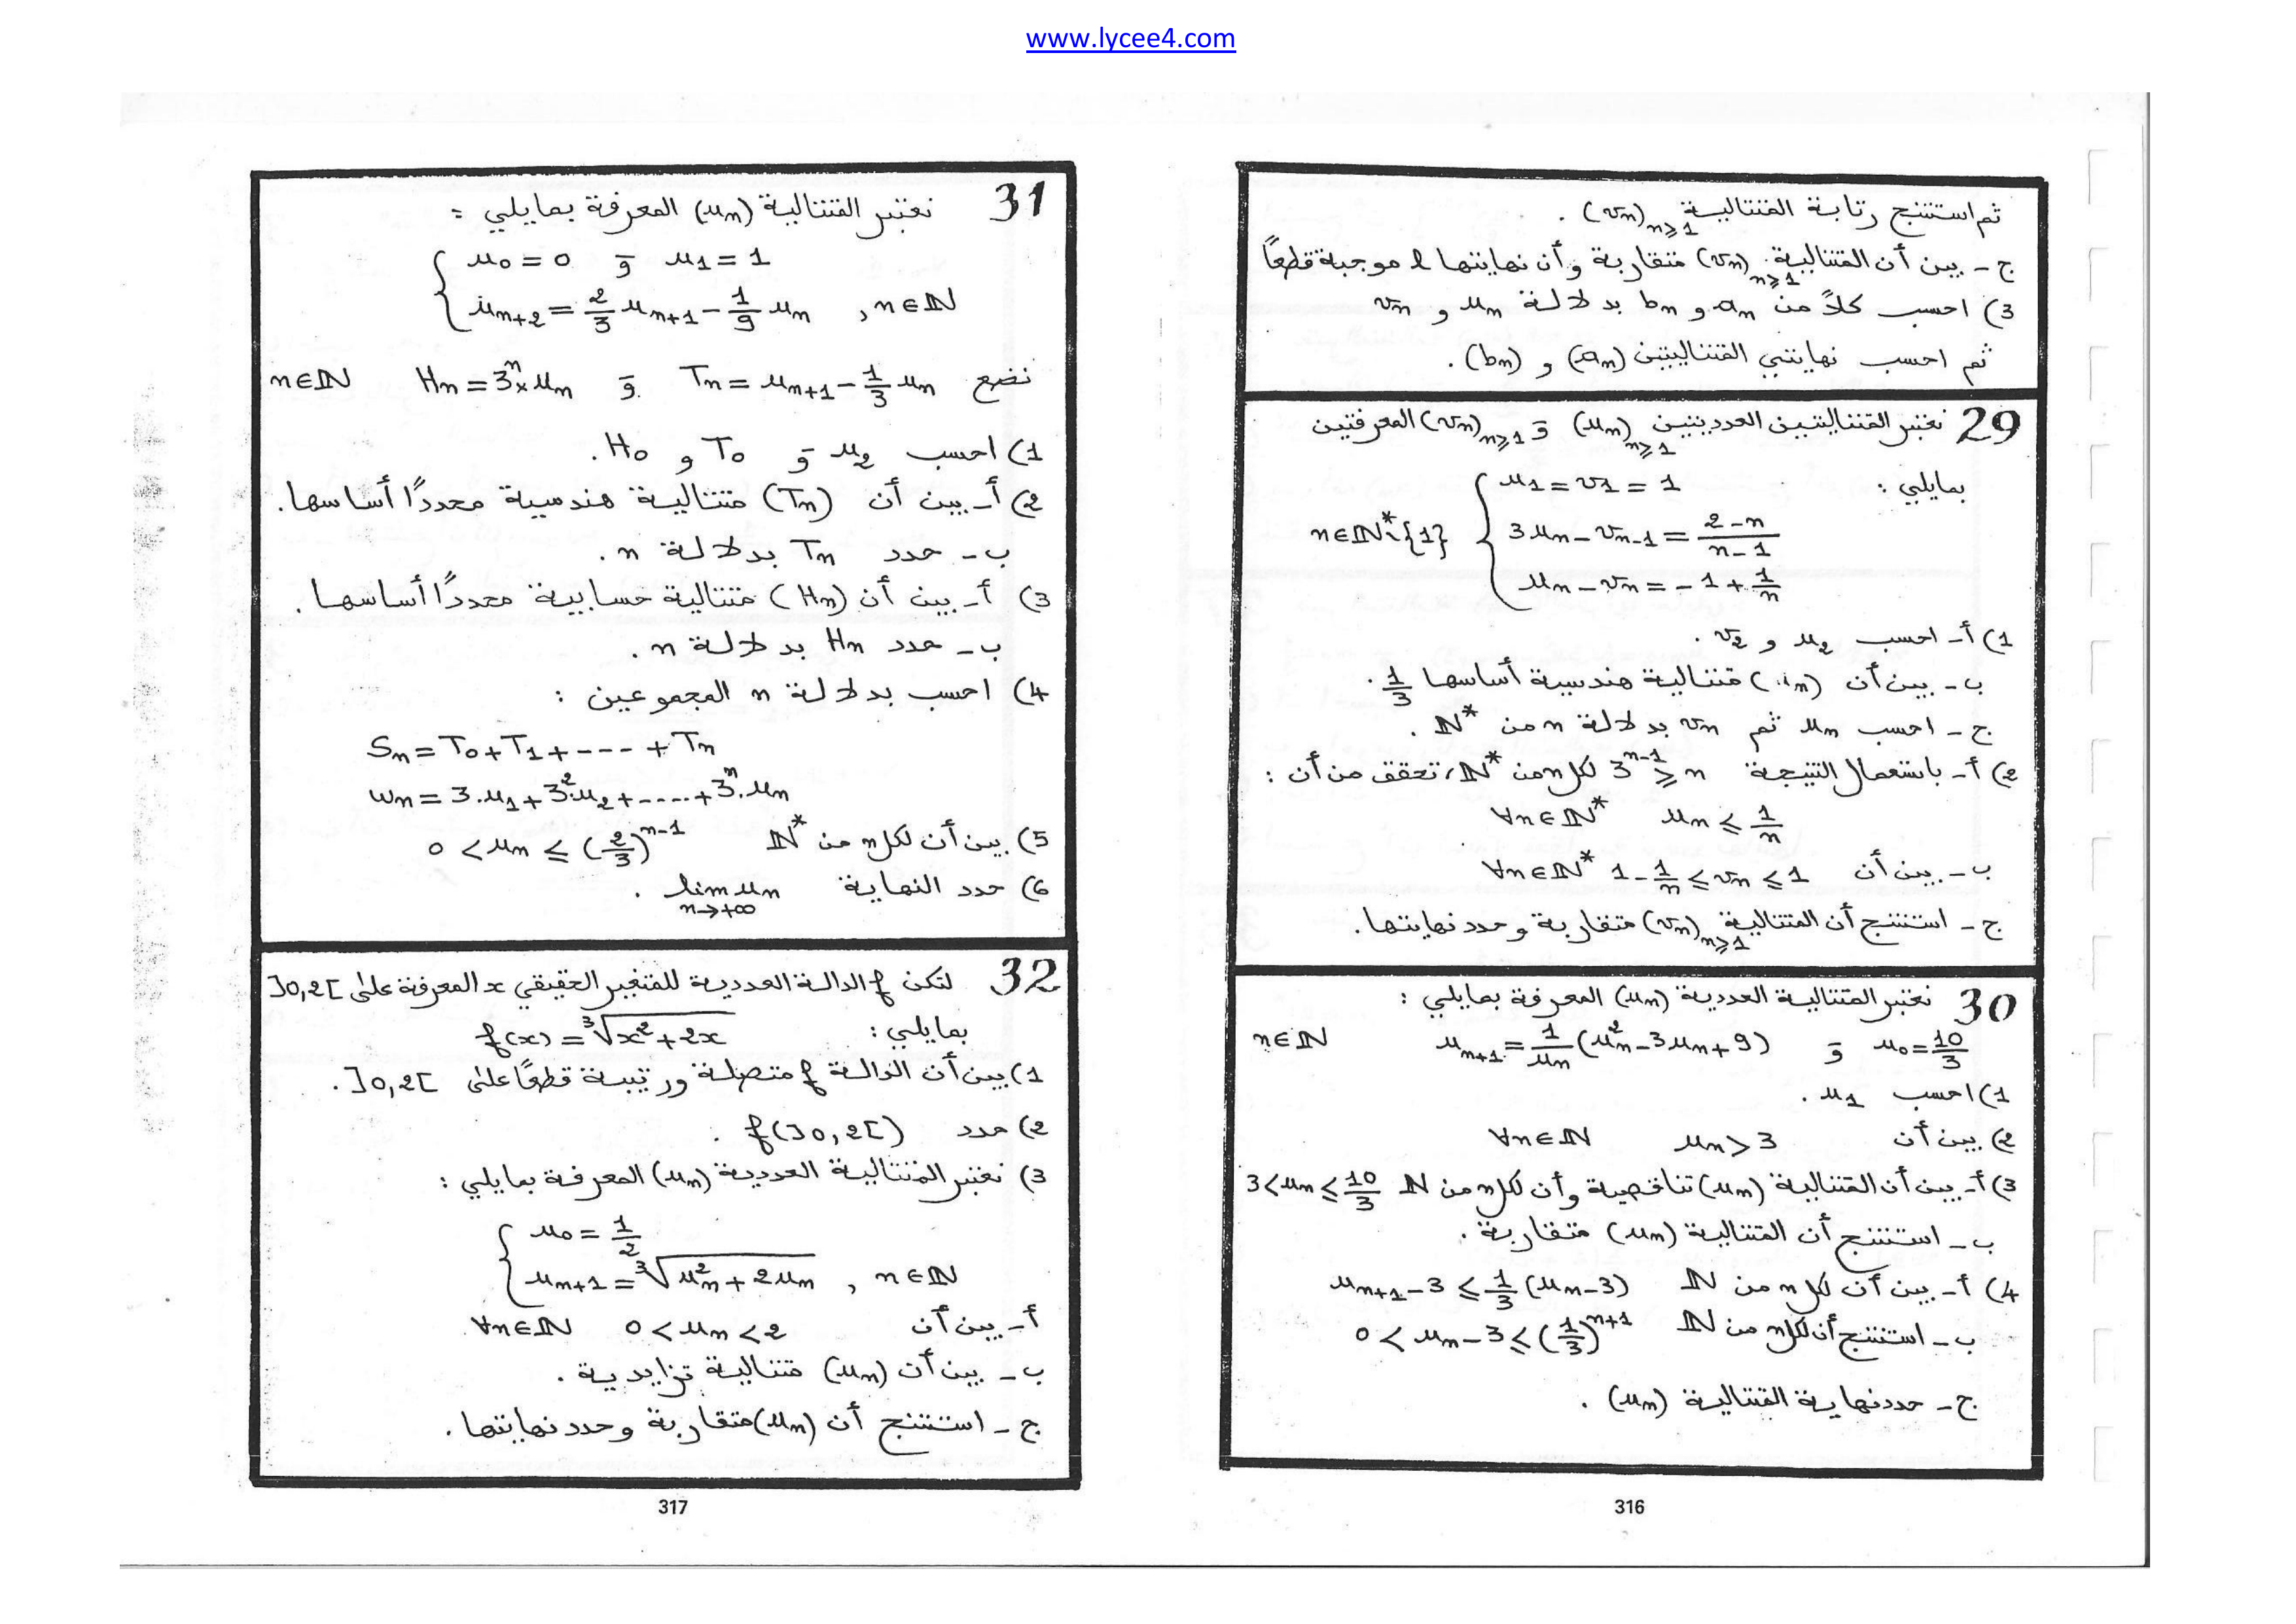 www.lycee4.com
ثم استنتج رتابة المتتالية (vn)n≥1 .
ج - بين أن المتتالية (vn)n≥1 متقاربة وأن نهايتها l موجبة قطعاً
3) احسب كلاً من an و bn بدلالة un و vn
ثم احسب نهايتي المتتاليتين (an) و (bn) .
29 نعتبر المتتاليتين العدديتين (un)n≥1 و (vn)n≥1 المعرفتين
بمايلي :
u1 = v1 = 1
3un - vn-1 = (2-n)/(n-1)   n∈ℕ*∖{1}
un - vn = -1 + 1/n
1) أ - احسب u2 و v2 .
ب - بين أن (un) متتالية هندسية أساسها 1/3 .
ج - احسب un ثم vn بدلالة n من ℕ* .
2) أ - باستعمال النتيجة 3^(n-1) ≥ n لكل n من ℕ*، تحقق من أن :
∀n∈ℕ*   un ≤ 1/n
ب - بين أن   ∀n∈ℕ*   1 - 1/n ≤ vn ≤ 1
ج - استنتج أن المتتالية (vn)n≥1 متقاربة وحدد نهايتها.
30 نعتبر المتتالية العددية (un) المعرفة بمايلي :
u0 = 10/3 و un+1 = 1/un (un² - 3un + 9)   n∈ℕ
1) احسب u1 .
2) بين أن   un > 3   ∀n∈ℕ
3) أ - بين أن المتتالية (un) تناقصية وأن لكل n من ℕ   3 < un ≤ 10/3
ب - استنتج أن المتتالية (un) متقاربة .
4) أ - بين أن لكل n من ℕ   un+1 - 3 ≤ 1/3 (un - 3)
ب - استنتج أن لكل n من ℕ   0 < un - 3 ≤ (1/3)^(n+1)
ج - حدد نهاية المتتالية (un) .
316
31 نعتبر المتتالية (un) المعرفة بمايلي :
u0 = 0 و u1 = 1
un+2 = 2/3 un+1 - 1/9 un , n∈ℕ
نضع Tn = un+1 - 1/3 un و Hn = 3^n × un   n∈ℕ
1) احسب u2 و T0 و H0 .
2) أ - بين أن (Tn) متتالية هندسية محدداً أساسها .
ب - حدد Tn بدلالة n .
3) أ - بين أن (Hn) متتالية حسابية محدداً أساسها .
ب - حدد Hn بدلالة n .
4) احسب بدلالة n المجموعين :
Sn = T0 + T1 + ---- + Tn
wn = 3.u1 + 3².u2 + ..... + 3^n.un
5) بين أن لكل n من ℕ*   0 < un ≤ (2/3)^(n-1)
6) حدد النهاية lim un n→+∞ .
32 لتكن f الدالة العددية للمتغير الحقيقي x المعرفة على ]0,2[
بمايلي : f(x) = ³√(x² + 2x)
1) بين أن الدالة f متصلة ورتيبة قطعاً على ]0,2[ .
2) حدد f(]0,2[) .
3) نعتبر المتتالية العددية (un) المعرفة بمايلي :
u0 = 1/2
un+1 = ³√(un² + 2un) , n∈ℕ
أ - بين أن   0 < un < 2   ∀n∈ℕ
ب - بين أن (un) متتالية تزايدية .
ج - استنتج أن (un) متقاربة وحدد نهايتها .
317